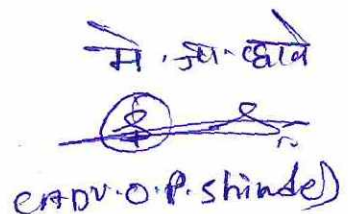 मे. आ. व्हावे
(ADV. O. P. Shinde)